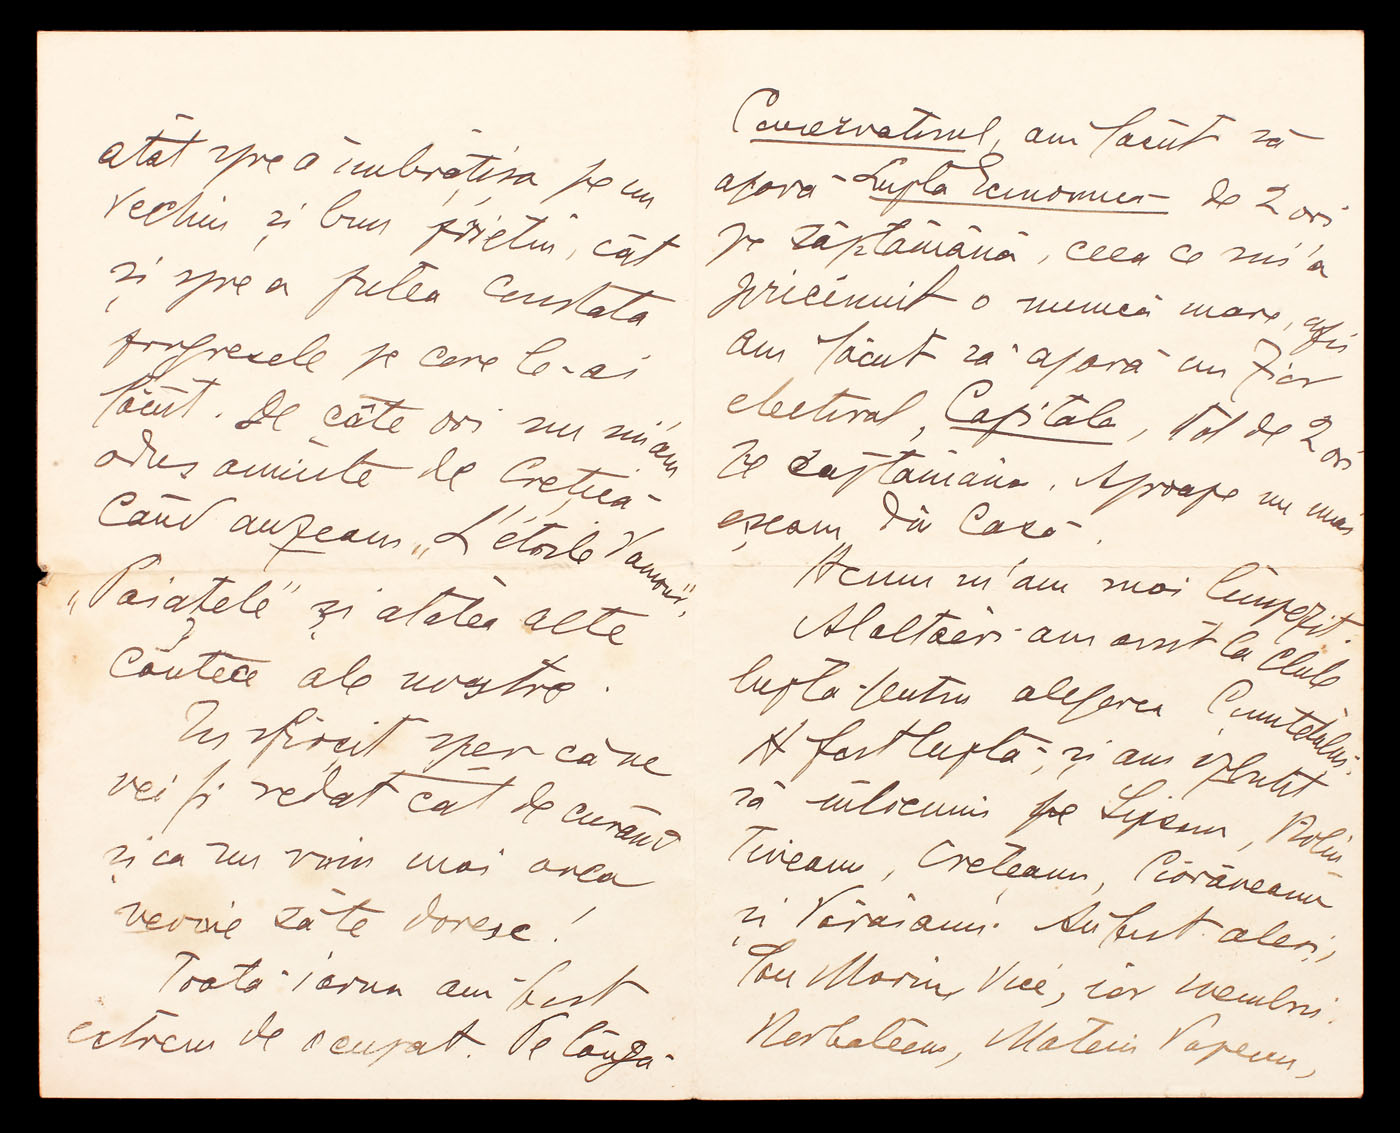 atât spre a îmbrățișa pe un
vechiu și bun prietin, cât
și spre a putea constata
progresele pe care le-ai
făcut. De câte ori nu mi'am
adus aminte de Crețica
când auzeam „L'étoile d'amour",
„Paiațele" și atâtea alte
cântece ale noastre.
In sfîrșit sper că ne
vei fi redat cât de curând
și ca nu vom mai avea
nevoie să te doresc!
Toată iarna am fost
extrem de ocupat. Pe lângă
Conservatorul, am făcut să
apară Lupta Economică de 2 ori
pe săptămână, ceea ce mi'a
pricinuit o muncă mare, apoi
am făcut să apară un ziar
electoral, Capitala, tot de 2 ori
pe săptămâna. Aproape nu mai
eșeam din casă.
Acum m'am mai limpezit.
Alaltăeri am avut la club
lupta pentru alegerea Comitetului.
A fost luptă, și am izbutit
să înlocuim pe Lipsan,
, Crețeanu, Ciorăneanu
și Vărăianu. Au fost aleși,
Ion Marin Vice, iar membri.
, Mateiu Popescu,